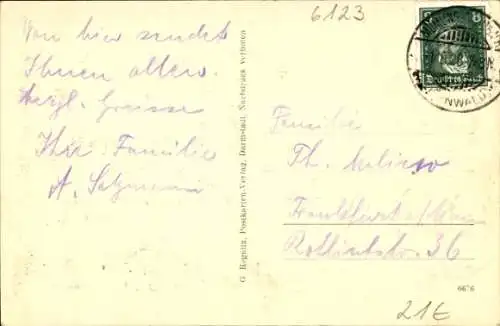 6123
8
Deutsches Reich
NWALD
Von hier sendet
Ihnen allen
herzl. Grüsse
Ihre Familie
A. Salzmann
G. Regnitz, Postkarten-Verlag, Darmstadt, Nachdruck verboten
Familie
Th.
Frankfurt a/Main
Rotlintstr. 36
6676
21E